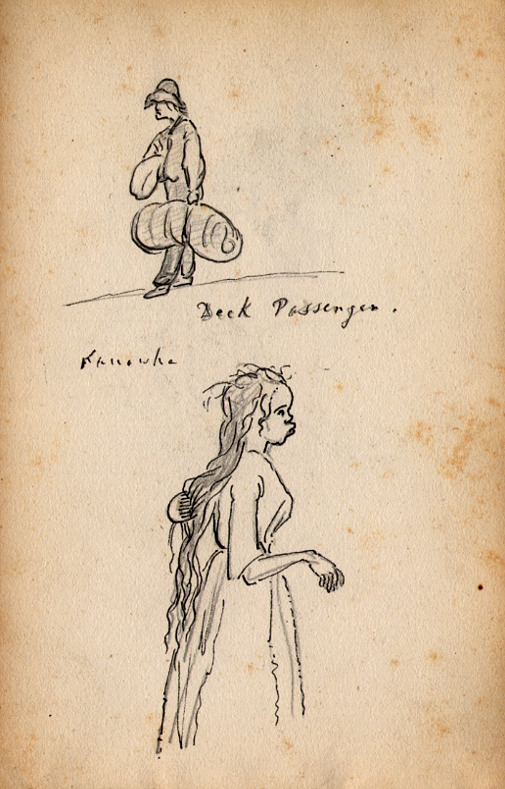 Deck Passenger.
Kanawha